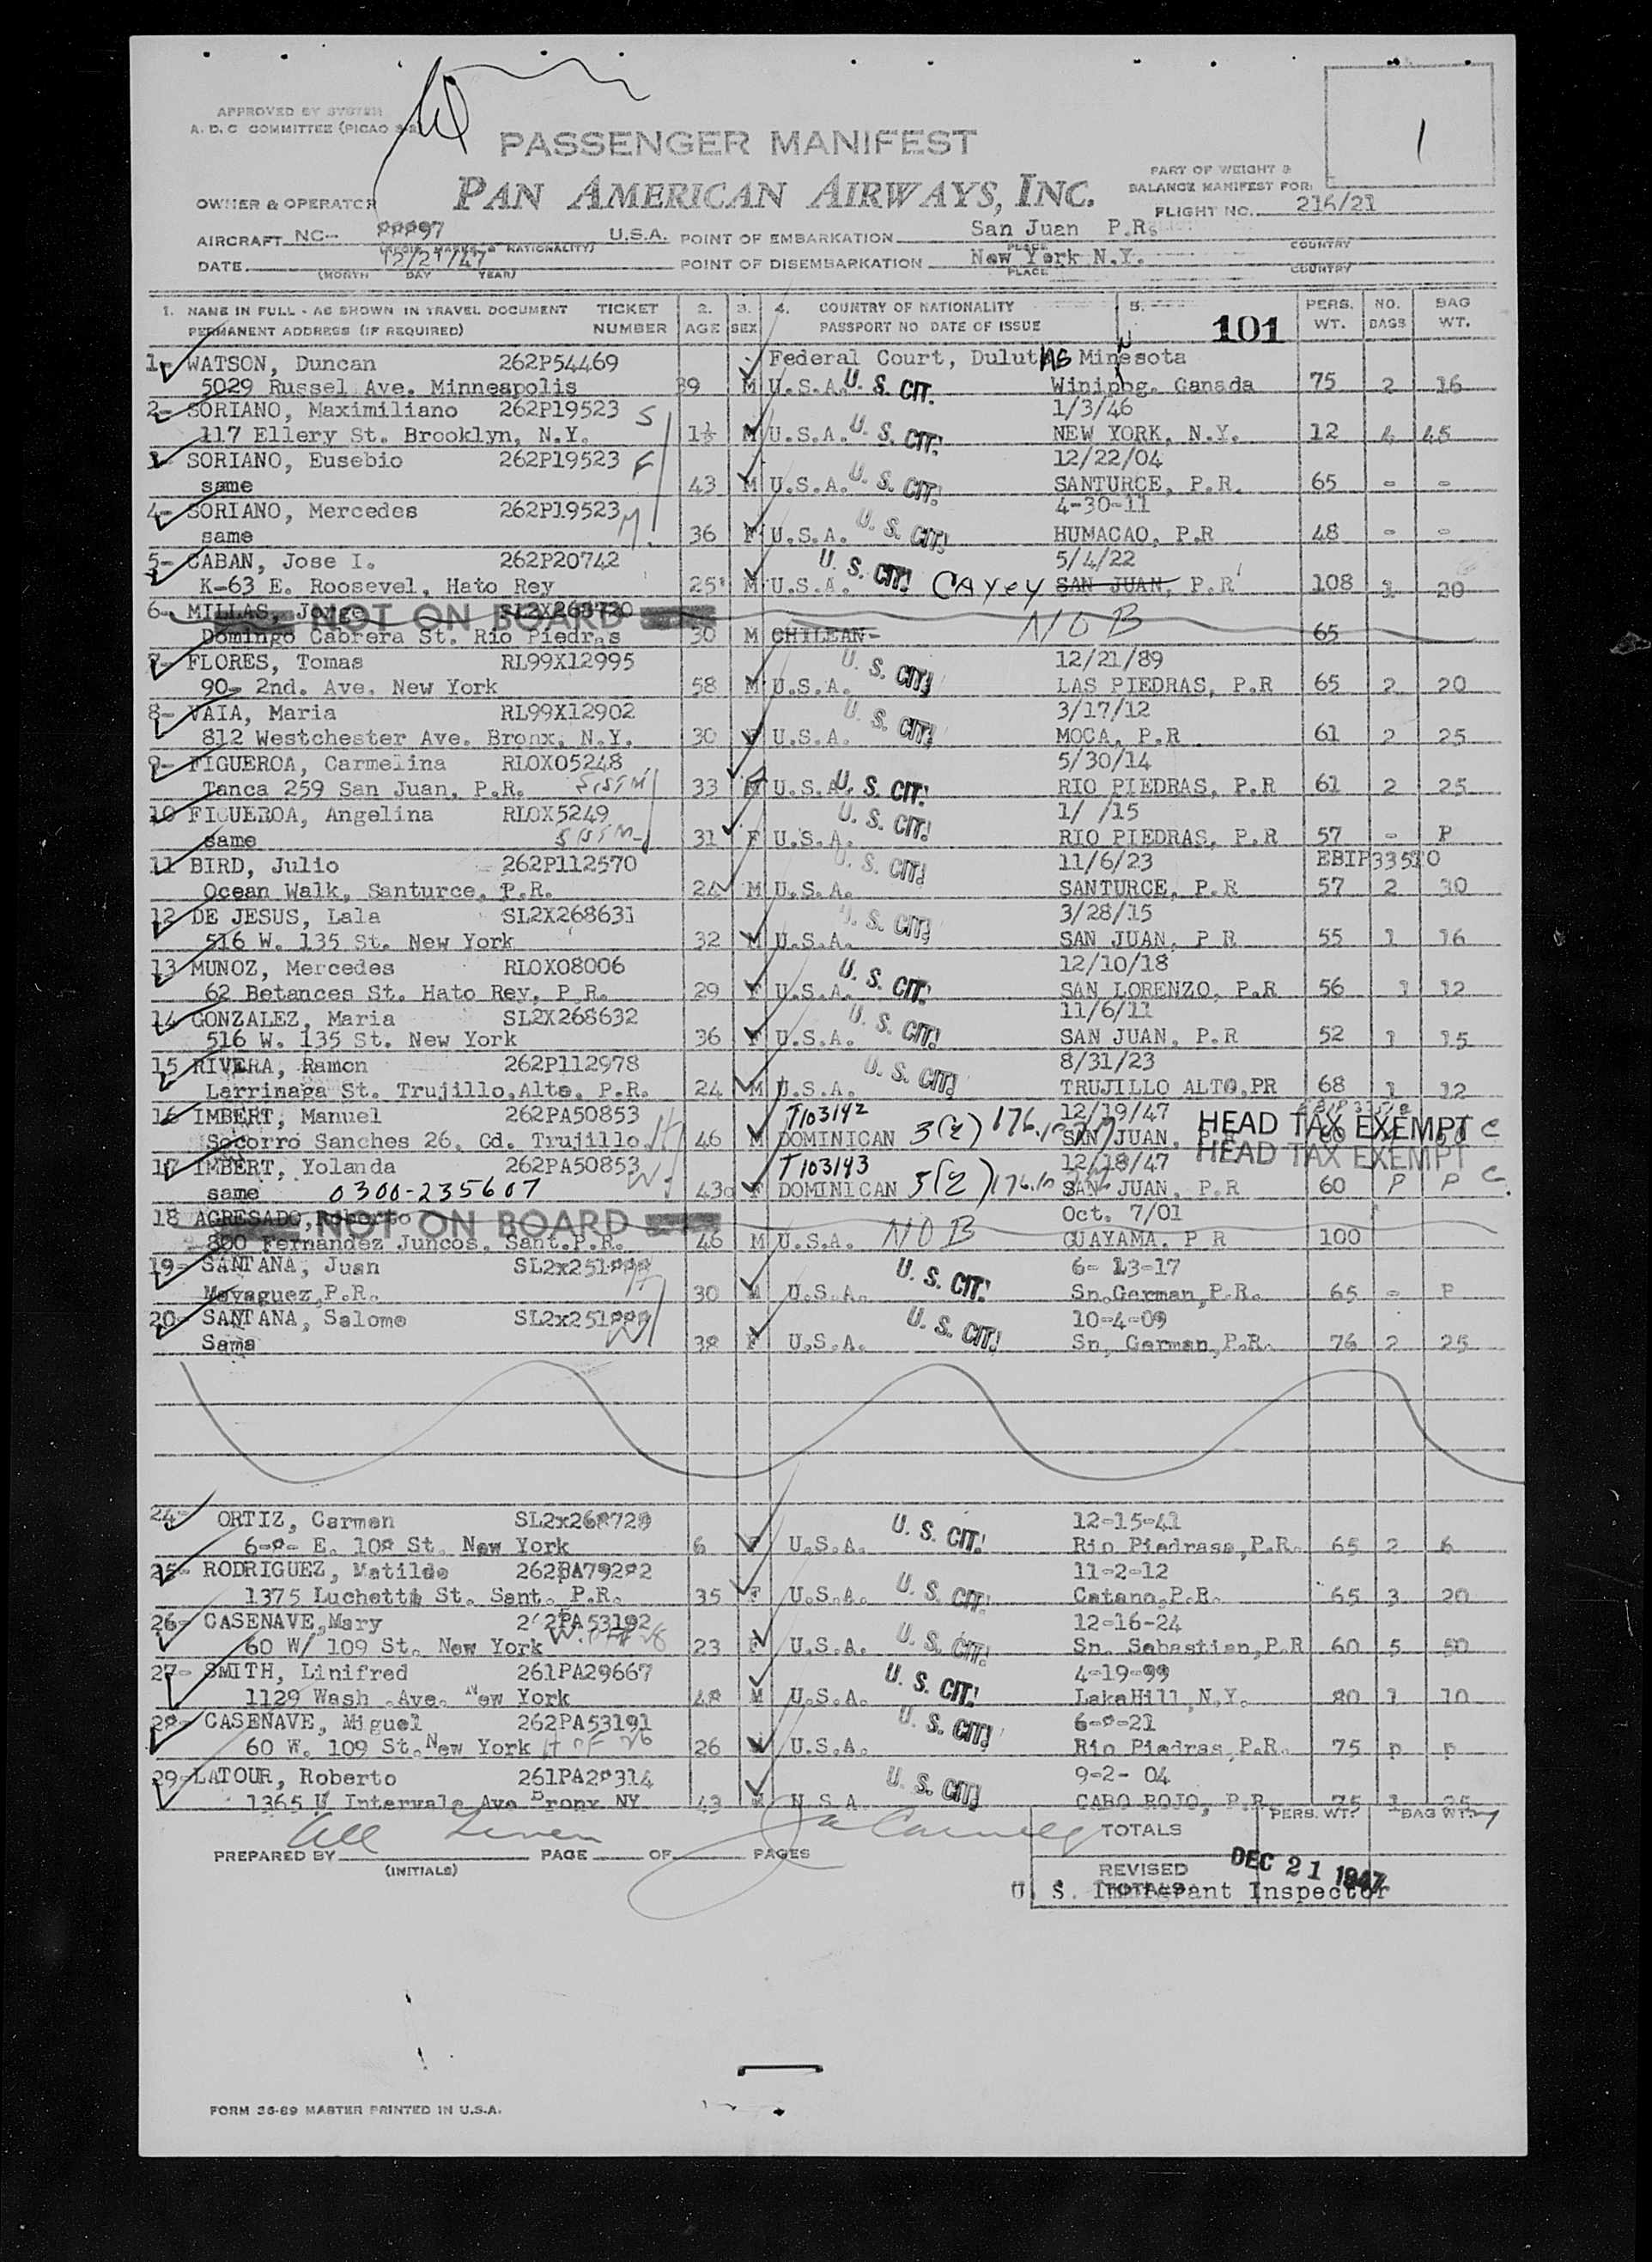 APPROVED BY SYSTEM
A. D. C COMMITTEE (PICAO
PASSENGER MANIFEST
PAN AMERICAN AIRWAYS, INC.
1
PART OF WEIGHT &
BALANCE MANIFEST FOR:
OWNER & OPERATOR
FLIGHT NO. 216/21
AIRCRAFT NC- U.S.A. POINT OF EMBARKATION San Juan P.R.
(REGIS. MARKS & NATIONALITY) PLACE COUNTRY
DATE 12/21/47 POINT OF DISEMBARKATION New York N.Y.
(MONTH DAY YEAR) PLACE COUNTRY
1. NAME IN FULL - AS SHOWN IN TRAVEL DOCUMENT TICKET 2. 3. 4. COUNTRY OF NATIONALITY 5. PERS. NO. BAG
PERMANENT ADDRESS (IF REQUIRED) NUMBER AGE SEX PASSPORT NO DATE OF ISSUE 101 WT. BAGS WT.
1- WATSON, Duncan 262P54469 Federal Court, Duluth Minesota
5029 Russel Ave. Minneapolis 39 M U.S.A. U. S. CIT. Winipeg. Canada 75 2 16
2- SORIANO, Maximiliano 262P19523 S 1/3/46
117 Ellery St. Brooklyn, N.Y. 1½ M U.S.A. U. S. CIT. NEW YORK, N.Y. 12 4 45
3- SORIANO, Eusebio 262P19523 F 12/22/04
same 43 M U.S.A. U. S. CIT. SANTURCE, P.R. 65 - -
4- SORIANO, Mercedes 262P19523 M. 4-30-11
same 36 F U.S.A. U. S. CIT. HUMACAO, P.R 48 - -
5- CABAN, Jose I. 262P20742 5/4/22
K-63 E. Roosevel, Hato Rey 25 M U.S.A. U. S. CIT. CAYEY SAN JUAN, P.R 108 1 20
6- MILLAS, Jorge NOT ON BOARD SL2X268720
Domingo Cabrera St. Rio Piedras 30 M CHILEAN- NOB 65
7- FLORES, Tomas RL99X12995 12/21/89
90- 2nd. Ave. New York 58 M U.S.A. U. S. CIT. LAS PIEDRAS, P.R 65 2 20
8- VAIA, Maria RL99X12902 3/17/12
812 Westchester Ave. Bronx, N.Y. 30 F U.S.A. U. S. CIT. MOCA, P.R 61 2 25
9- FIGUEROA, Carmelina RLOX05248 5/30/14
Tanca 259 San Juan, P.R. 33 F U.S.A. U. S. CIT. RIO PIEDRAS, P.R 61 2 25
10 FIGUEROA, Angelina RLOX5249 1/ /15
same 31 F U.S.A. U. S. CIT. RIO PIEDRAS, P.R 57 - P
11 BIRD, Julio 262P112570 11/6/23
Ocean Walk, Santurce, P.R. 24 M U.S.A. U. S. CIT. SANTURCE, P.R 57 2 30
12 DE JESUS, Lala SL2X268631 3/28/15
516 W. 135 St. New York 32 M U.S.A. U. S. CIT. SAN JUAN, P R 55 1 16
13 MUNOZ, Mercedes RLOX08006 12/10/18
62 Betances St. Hato Rey, P R. 29 F U.S.A. U. S. CIT. SAN LORENZO, P.R 56 1 12
14 GONZALEZ, Maria SL2X268632 11/6/11
516 W. 135 St. New York 36 F U.S.A. U. S. CIT. SAN JUAN, P.R 52 1 15
15 RIVERA, Ramon 262P112978 8/31/23
Larrinaga St. Trujillo,Alto, P.R. 24 M U.S.A. U. S. CIT. TRUJILLO ALTO,PR 68 1 12
16 IMBERT, Manuel 262PA50853 T103142 12/19/47 HEAD TAX EXEMPT
Socorro Sanches 26, Cd. Trujillo H 46 M DOMINICAN 3(2) SAN JUAN, C
17 IMBERT, Yolanda 262PA50853 W. T103143 12/18/47 HEAD TAX EXEMPT
same 0300-235607 43 F DOMINICAN 3(2) SAN JUAN, P.R 60 P P C.
18 AGRESADO, Roberto NOT ON BOARD Oct. 7/01
800 Fernandez Juncos, Sant.P.R. 46 M U.S.A. NOB GUAYAMA, P R 100
19- SANTANA, Juan 6- 13-17
Mayaguez,P.R. H 30 M U.S.A. U. S. CIT. Sn.German,P.R. 65 - P
20- SANTANA, Salome W 10-4-09
Same 38 F U.S.A. U. S. CIT. Sn, German,P.R. 76 2 25
24- ORTIZ, Carmen 12-15-41
New York 6 F U.S.A. U. S. CIT. Rio Piedrass,P.R. 65 2 6
25- RODRIGUEZ, Matilde 11-2-12
1375 Luchetti St. Sant. P.R. 35 F U.S.A. U. S. CIT. Catano,P.R. 65 3 20
26- CASENAVE,Mary 12-16-24
60 W/ 109 St. New York 23 F U.S.A. U. S. CIT. Sn. Sebastian,P.R 60 5 50
27- SMITH, Linifred 261PA29667 4-19-99
1129 Wash .Ave. New York 48 M U.S.A. U. S. CIT. LakeHill,N.Y. 80 1 10
28- CASENAVE, Miguel 262PA53191
60 W. 109 St.New York H OF 26 26 M U.S.A. U. S. CIT. Rio Piedras,P.R. 75 P P
29-LATOUR, Roberto 9-2- 04
1365 Intervale Ave Bronx NY 43 M U.S.A U. S. CIT. CABO ROJO, P.R 75 1 25
PREPARED BY PAGE OF PAGES
(INITIALS)
TOTALS PERS. WT. BAG WT.
REVISED TOTALS
DEC 21 1947
U. S. Immigrant Inspector
FORM 36-89 MASTER PRINTED IN U.S.A.